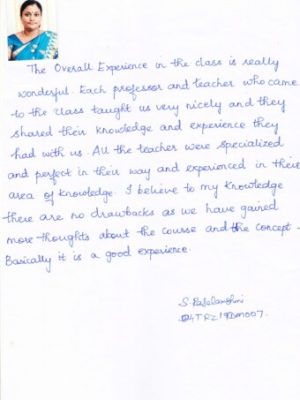 The Overall Experience in the class is really
wonderful. Each professor and teacher who came
to the class taught us very nicely and they
shared their knowledge and experience they
had with us. All the teacher were specialized
and perfect in their way and experienced in their
area of knowledge. I believe to my knowledge
there are no drawbacks as we have gained
more thoughts about the course and the concept.
Basically it is a good experience.
S